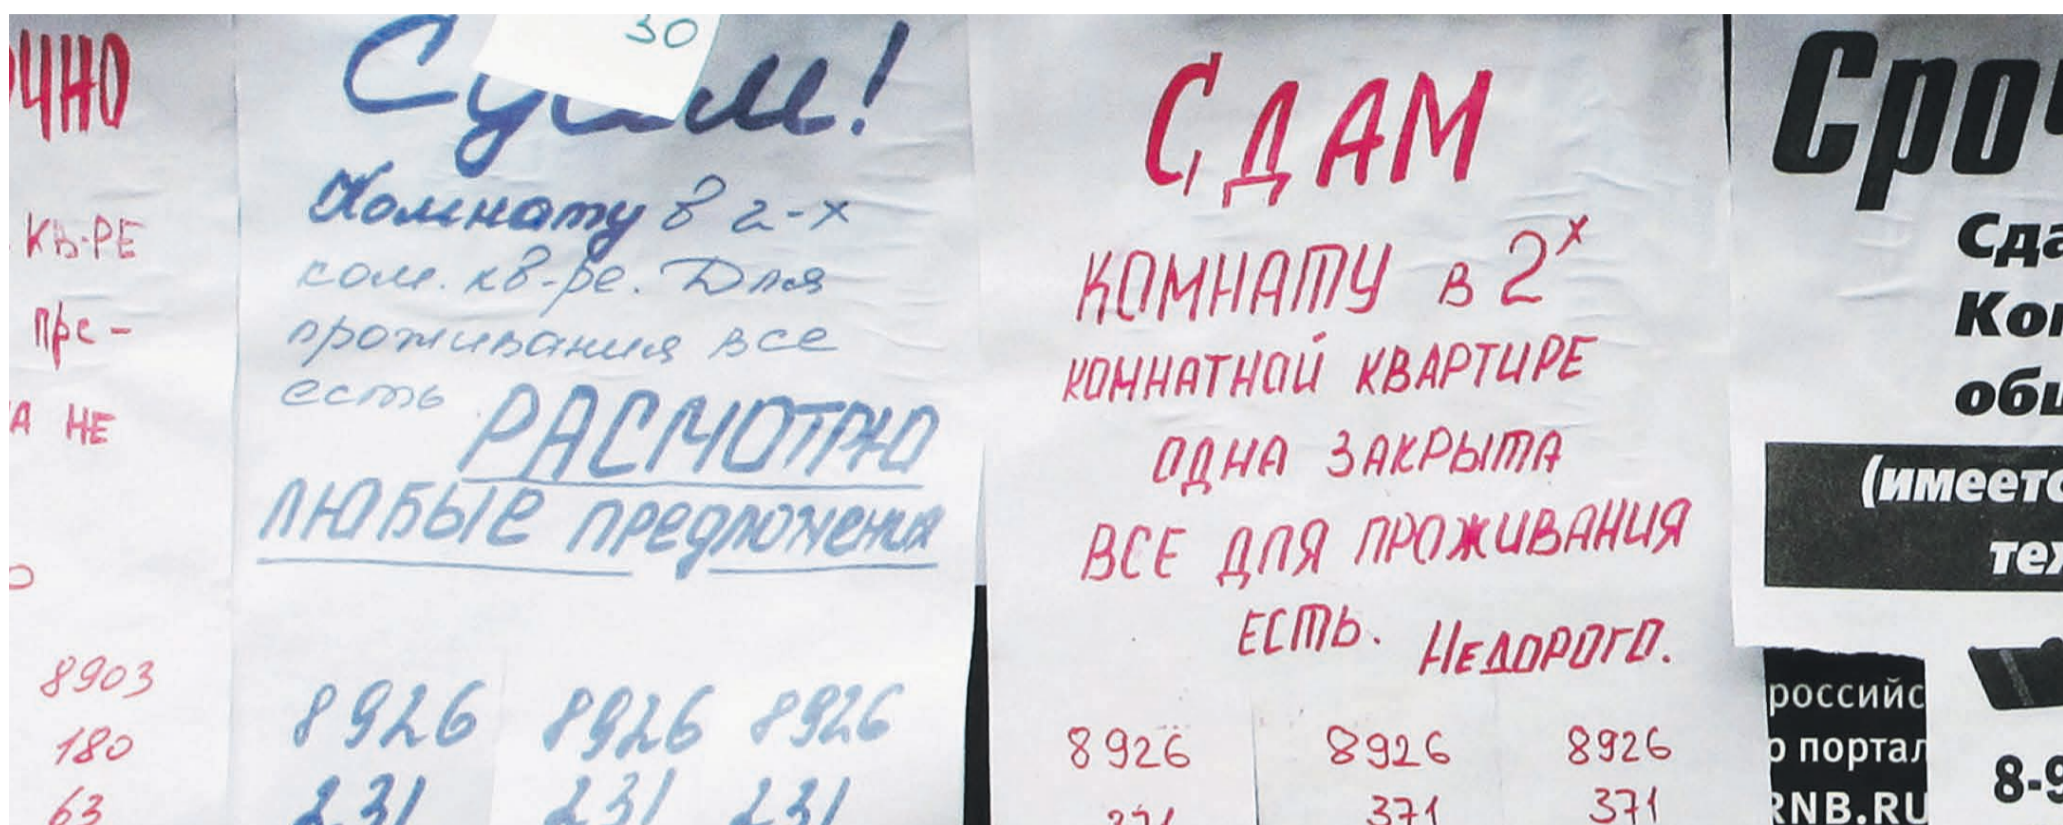 ОЧНО
КВ-РЕ
ПРЕ-
А НЕ
8903
180
63
30
Сдам!
Комнату в 2-х
ком. кв-ре. Для
проживания все
есть РАСМОТРЮ
ЛЮБЫЕ предложения
8926 8926 8926
231 231 231
СДАМ
КОМНАТУ В 2х
КОМНАТНОЙ КВАРТИРЕ
ОДНА ЗАКРЫТА
ВСЕ ДЛЯ ПРОЖИВАНИЯ
ЕСТЬ. НЕДОРОГО.
8926 8926 8926
371 371 371
Сроч
Сда
Ко
общ
(имеетс
тех
российс
о портал
RNB.RU
8-9